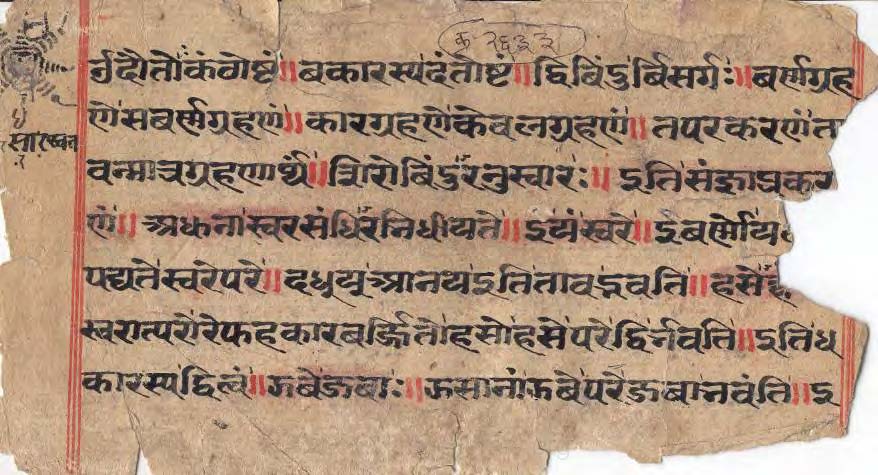 क २६३३
र्ग्रदौतोकंवोष्टं॥बकारस्यदंतोष्टं॥द्विबिंदुर्बिसर्गः॥बर्णग्रह
सारस्वत
णेसबर्णग्रहणं॥कारग्रहणेकेवलग्रहणं॥तपरकरणंता
वन्मात्रग्रहणार्थं॥शिरोबिंदुरनुस्वारः॥इतिसंज्ञाप्रकर
णं॥अधनास्वरसंधिरभिधीयते॥इयंस्वरे॥इबर्णोय
पद्यतेस्वरेपरे॥दधुय्आनयइतितावद्भवति॥हसे
स्वरात्परोरेफहकारबर्ज्जितोहसोहसेपरेद्विर्भवति॥इतिध
कारस्यद्वित्वं॥ऊबेजबाः॥ऊसानांऊबेपरेजबाभवंति॥इ